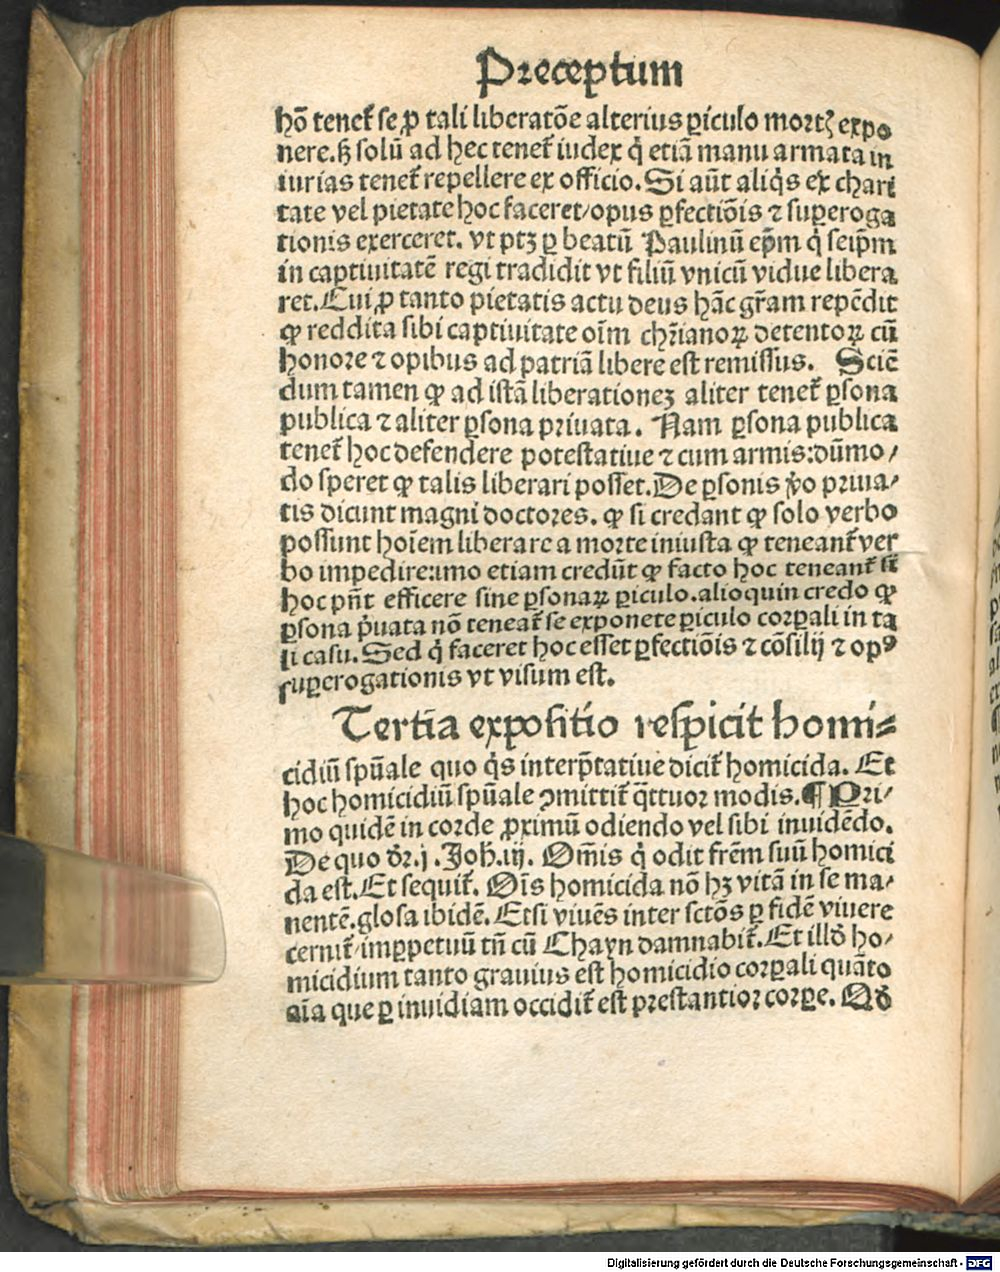 Preceptum
hõ tenet᷑ se ꝓ tali liberatõe alterius ꝑiculo mortꝭ expo
nere.ꝫ solũ ad hec tenet᷑ iudex q̇ etiã manu armata in
iurias tenet᷑ repellere ex officio. Si aũt aliq̇s ex chari
tate vel pietate hoc faceret/opus ꝑfectiõis ⁊ suꝑeroga
tionis exerceret. vt ptꝫ ꝑ beatũ Paulinũ ep̃m q̇ seip̃m
in captiuitatẽ regi tradidit vt filiũ vnicũ vidue libera
ret. Cui ꝓ tanto pietatis actu deus hãc gr̃am repẽdit
ꝙ reddita sibi captiuitate oĩm chr̃ianoꝝ detentoꝝ cũ
honore ⁊ opibus ad patriã libere est remissus. Sciẽ
dum tamen ꝙ ad istã liberationeꝫ aliter tenet᷑ ꝑsona
publica ⁊ aliter ꝑsona priuata. Nam ꝑsona publica
tenet᷑ hoc defendere potestatiue ⁊ cum armis:dũmo/
do speret ꝙ talis liberari posset. De ꝑsonis v̊o priua/
tis dicunt magni doctores. ꝙ si credant ꝙ solo verbo
possunt hoĩem liberare a morte iniusta ꝙ teneant᷑ ver
bo impedire:imo etiam credũt ꝙ facto hoc teneant᷑ si
hoc pñt efficere sine ꝑsonaꝝ ꝑiculo.alioquin credo ꝙ
ꝑsona ṗuata nõ teneat᷑ se exponete ꝑiculo corꝑali in ta
li casu. Sed q̇ faceret hoc esset ꝑfectiõis ⁊ cõsilij ⁊ opꝰ
suꝑerogationis vt visum est.
Tertia expositio respicit homi⸗
cidiũ spũale quo q̇s interp̃tatiue dicit᷑ homicida. Et
hoc homicidiũ spũale ꝯmittit᷑ q̃ttuor modis. ¶ Pri/
mo quidẽ in corde ꝓximũ odiendo vel sibi inuidẽdo.
De quo dr̃.j. Joh̃.iij. Om̃is q̇ odit fr̃em suũ homici
da est. Et sequit᷑. Oĩs homicida nõ hꝫ vitã in se ma/
nentẽ.glosa ibidẽ. Etsi viuẽs inter sctõs ꝑ fidẽ viuere
cernit᷑/imꝑpetuũ tñ cũ Chayn damnabit᷑. Et illd̃ ho/
micidium tanto grauius est homicidio corꝑali quãto
aĩa que ꝑ inuidiam occidit᷑ est prestantior corꝑe. Qd̃
Digitalisierung gefördert durch die Deutsche Forschungsgemeinschaft - DFG